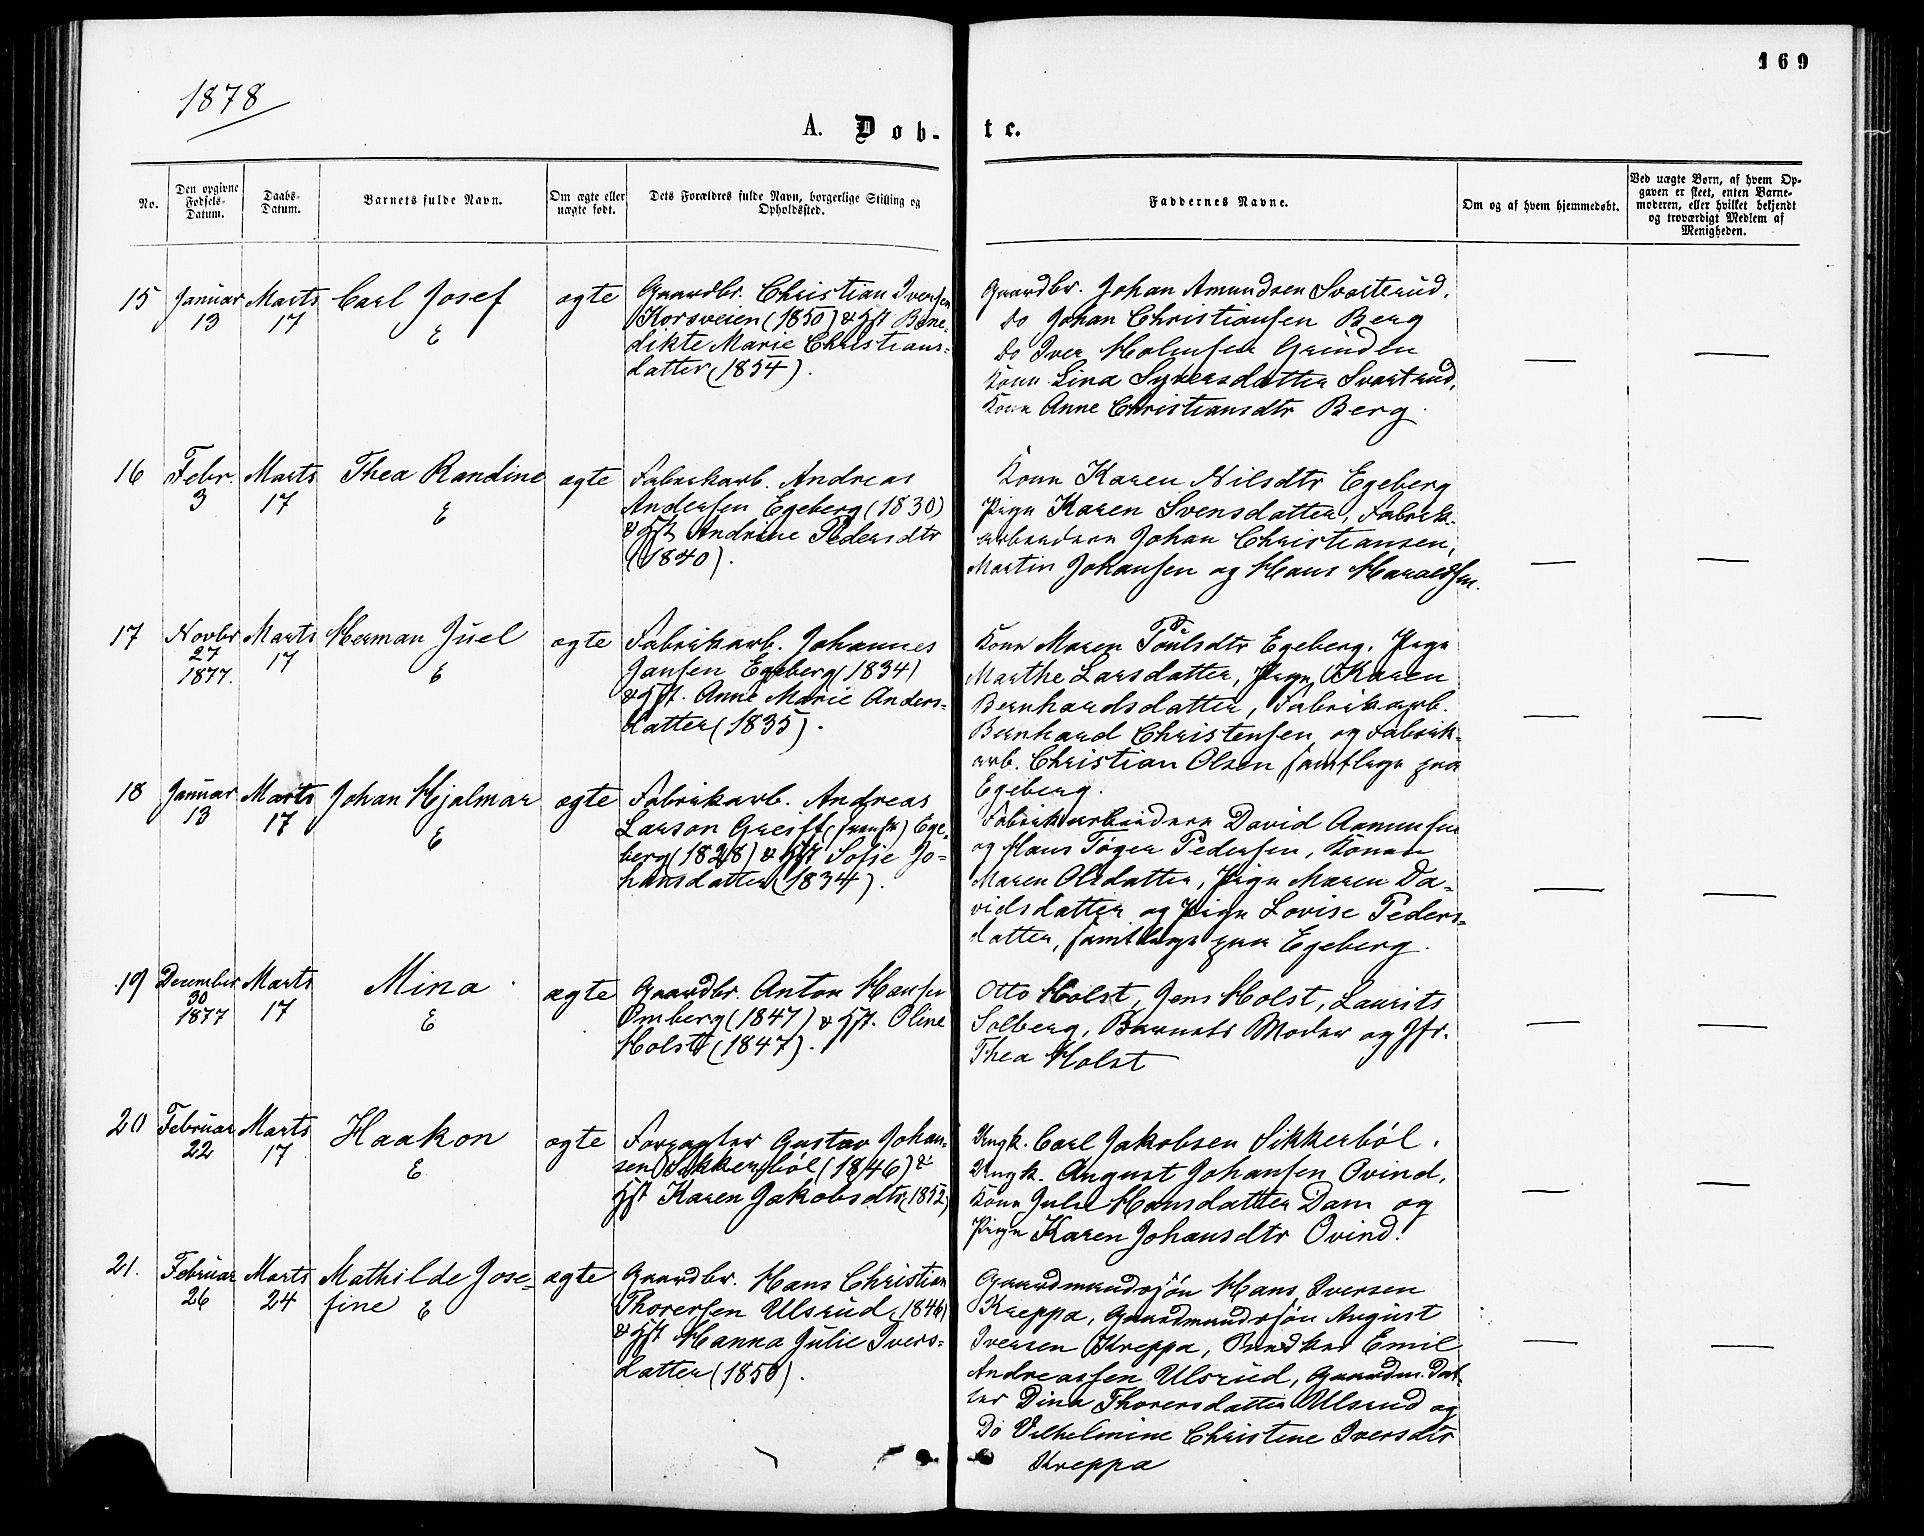 169
1878
A. Døb-te.
No.
Den opgivne Fødsels-Datum.
Daabs-Datum.
Barnets fulde Navn.
Om ægte eller uægte født.
Dets Forældres fulde Navn, borgerlige Stilling og Opholdssted.
Faddernes Navne.
Om og af hvem hjemmedøbt.
Ved uægte Børn, af hvem Opgaven er skeet, enten Barnemoderen, eller hvilket bekjendt og troværdigt Medlem af Menigheden.
15 Januar 13 Marts 17 Carl Josef E ægte
Gaardbr. Christian Iversen
Korsveien (1850) & Hst Bene-
dikte Marie Christians-
datter (1854).
Gaardbr. Johan Amundsen Svarterud,
Do Johan Christiansen Berg
Do Iver Holmsen Grinden
Kone Lina Syversdatter Svartrud,
Kone Anne Christiansdtr Berg.
— —
16 Febr. 3 Marts 17 Thea Randine E ægte
Fabrikarb. Andreas
Andersen Egeberg (1830)
& Hst Andrine Pedersdtr
(1840).
Kone Karen Nilsdtr Egeberg
Pige Karen Svensdatter, Fabrik-
arbeidern Johan Christiansen,
Martin Johansen og Hans Haraldsen.
— —
17 Novbr 27 1877. Marts 17 Herman Juel E ægte
Fabrikarb. Johannes
Jansen Egeberg (1834)
& Hst. Anne Marie Anders-
datter (1835).
Kone Maren Poulsdtr Egeberg, Pige
Marthe Larsdatter, Pige Karen
Bernhardsdatter, Fabrikarb.
Bernhard Christensen og Fabrik-
arb. Christian Olsen samtlige paa
Egeberg.
— —
18 Januar 13 Marts 17 Johan Hjalmar E ægte
Fabrikarb. Andreas
Larson Greiff, (svensk) Ege-
berg (1828) & Hst Sofie Jo-
hansdatter (1834).
Fabrikarbeidern David Asmunsen
og Hans Tøger Pedersen, Konen
Maren Olsdatter, Pige Maren Da-
vidsdatter og Pige Lovise Peders-
datter, samtlige paa Egeberg.
— —
19 December 30 1877 Marts 17 Mina E ægte
Gaardbr. Anton Hansen
Omberg (1847) & Hst. Oline
Holst (1847).
Otto Holst, Jens Holst, Laurits
Solberg, Barnets Moder og Jfr.
Thea Holst
— —
20 Februar 22 Marts 17 Haakon E ægte
Forpagter Gustav Johan-
sen Sikkerbøl (1846) &
Hst Karen Jakobsdtr (1852)
Ungk. Carl Jakobsen Sikkerbøl.
Ungk. August Johansen Ovind,
Kone Julie Hansdatter Dam og
Pige Karen Johansdtr Ovind.
— —
21. Februar 26 Marts 24 Mathilde Jose-
fine E ægte
Gaardbr. Hans Christian
Thorersen Ulsrud (1846)
& Hst Hanna Julie Ivers-
datter (1850).
Gaardmandssøn Hans Iversen
Kreppa, Gaardmandssøn August
Iversen Kreppa, Emil
Andreassen Ulsrud, Gaardm. Dat-
ter Dina Thorersdatter Ulsrud og
Do Vilhelmine Christine Iversdtr
Kreppa
— —